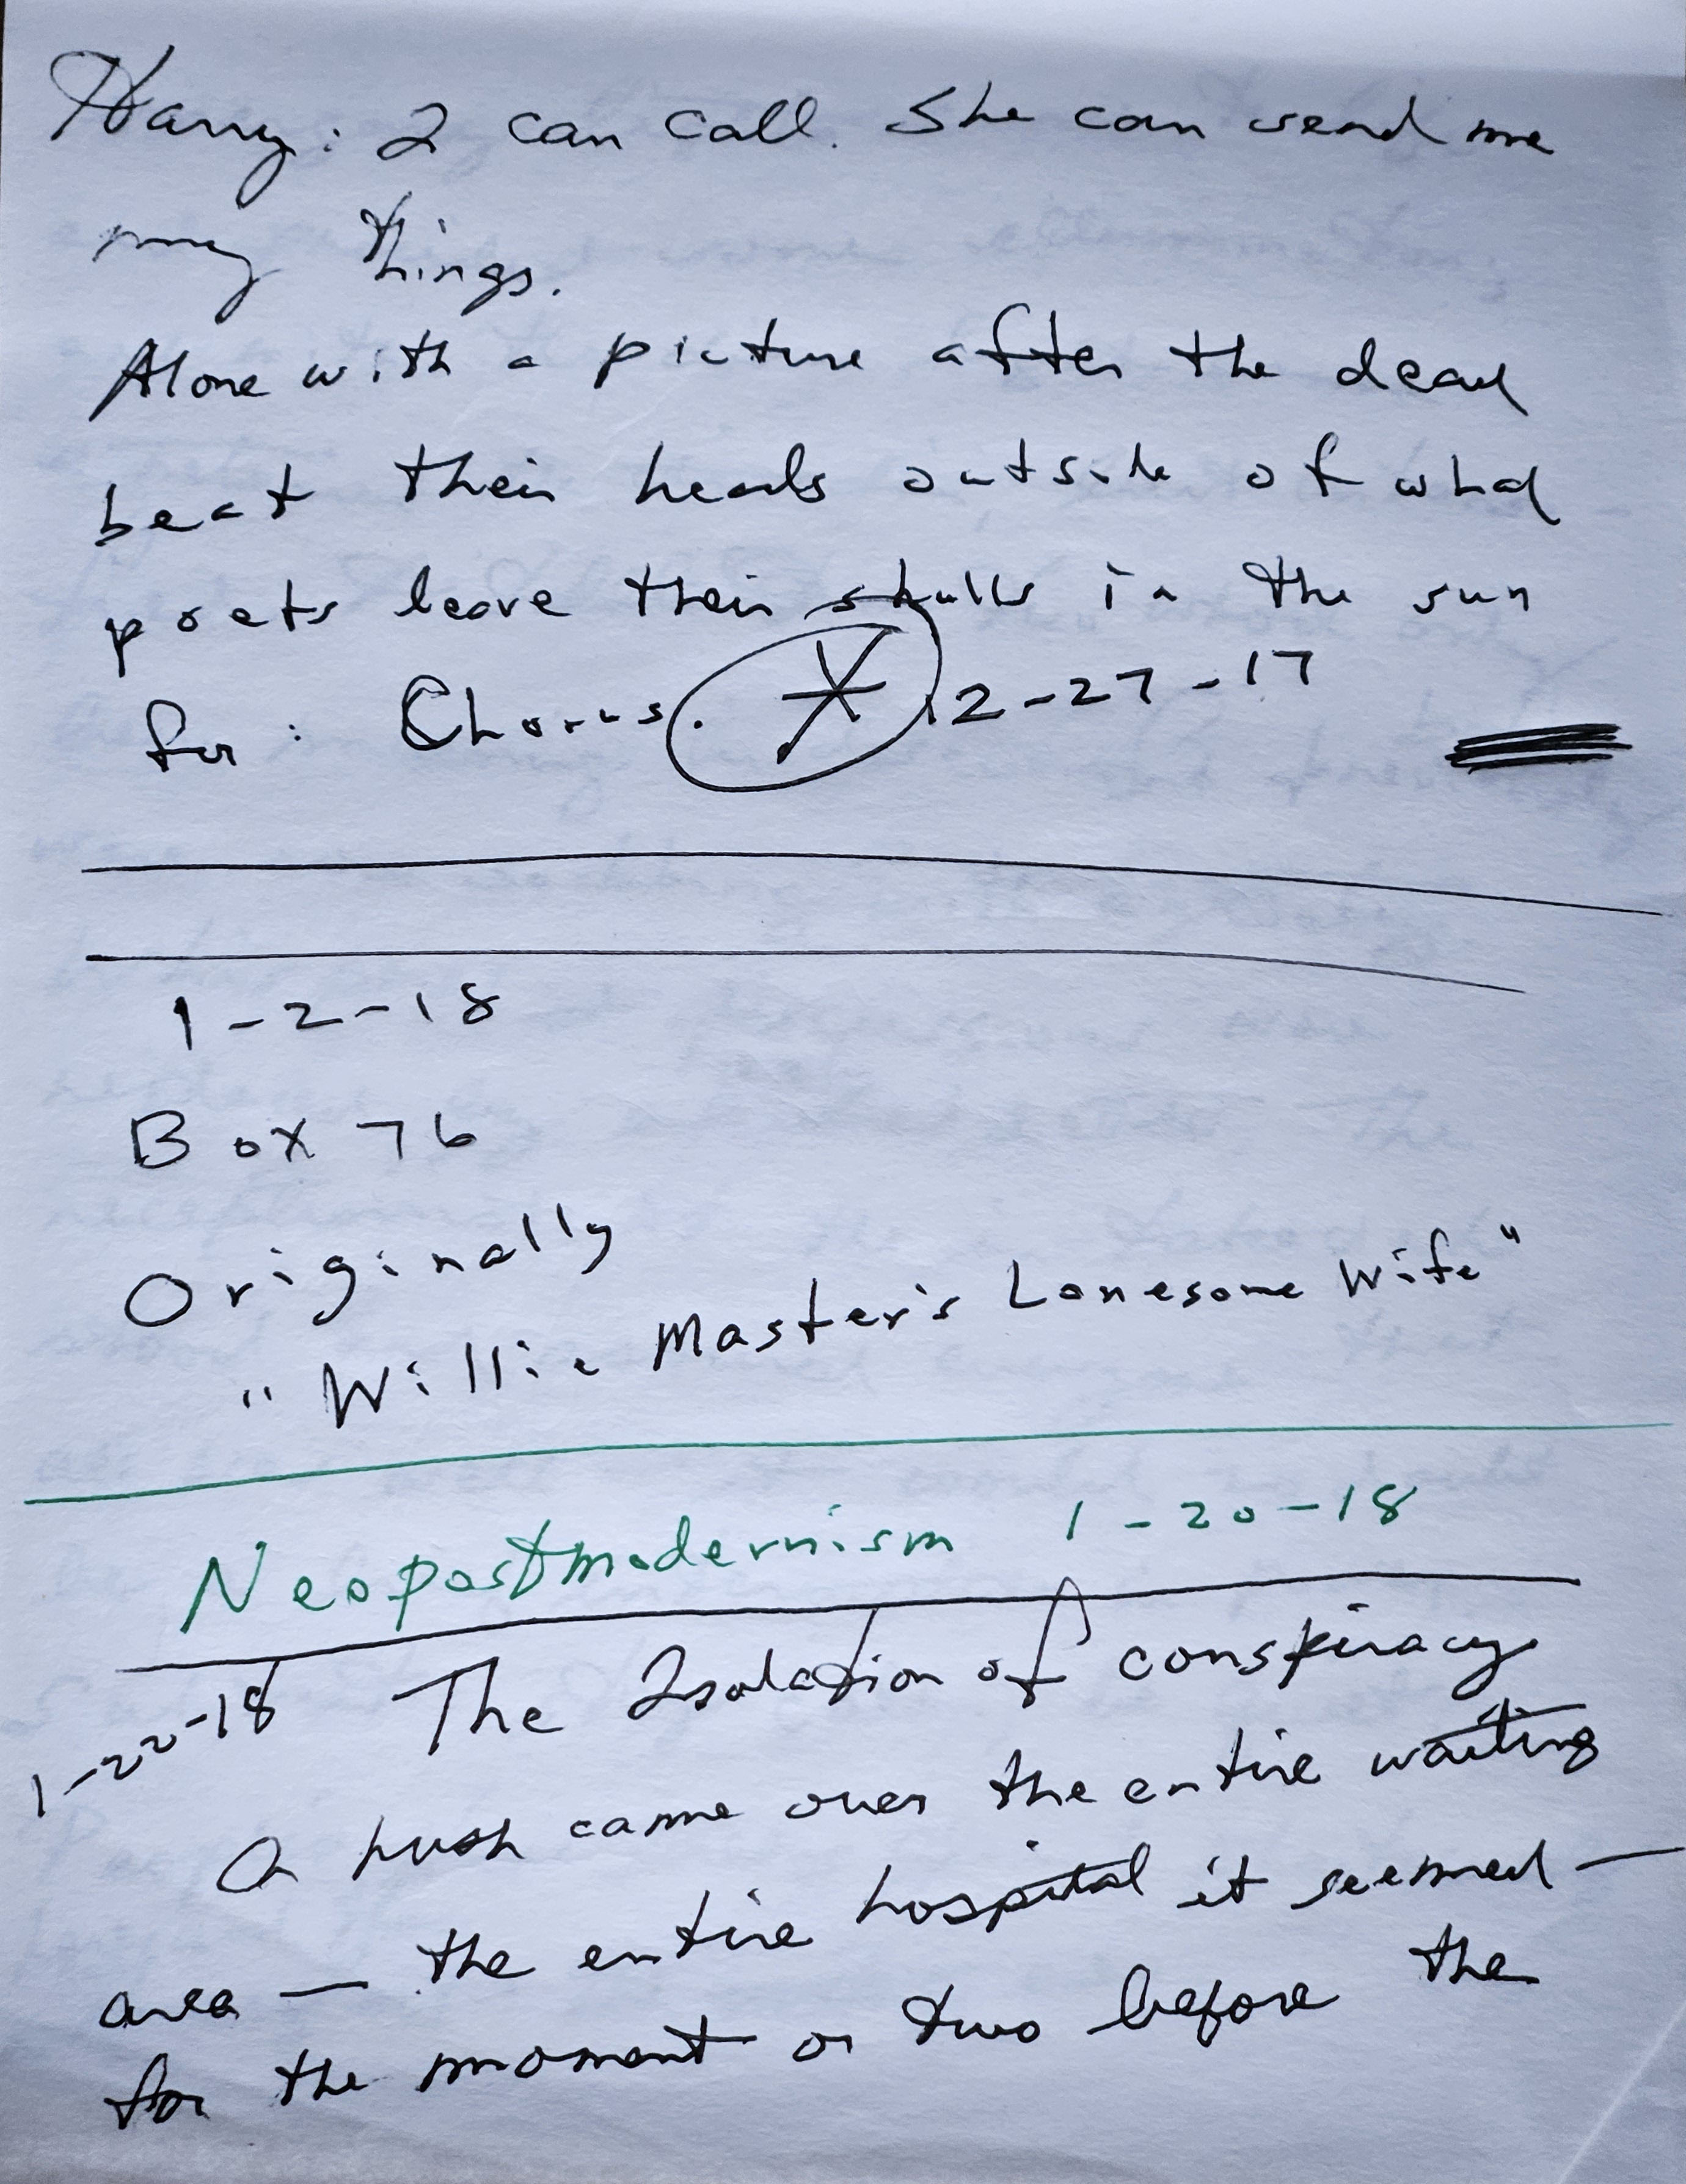 Harry: I can call. She can send me
my things.
Alone with a picture after the dead
beat their heads outside of what
poets leave their skulls in the sun
for: Chorus. 12-27-17
1-2-18
Box 76
Originally
"Willie Master's Lonesome Wife"
Neopostmodernism 1-20-18
1-22-18 The Isolation of conspiracy
A hush came over the entire waiting
area — the entire hospital it seemed —
for the moment or two before the